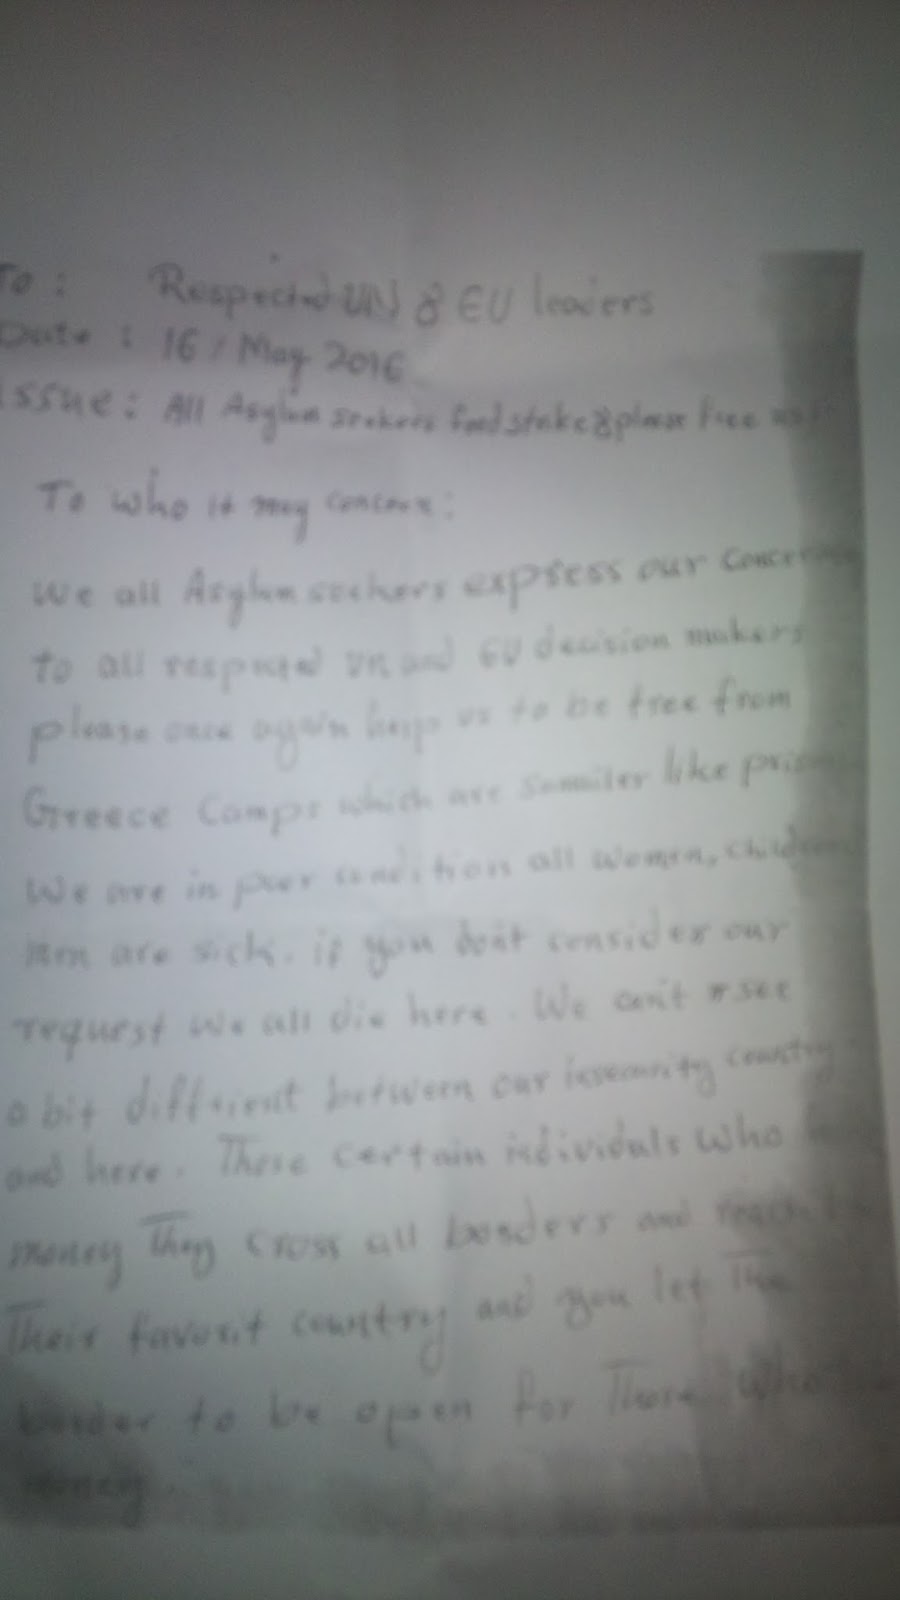 To: Respected UN & EU leaders
Date: 16 / May 2016
Issue: All Asylum seekers food strike & please free us
To who it may concern:
We all Asylum seekers express our concern
to all respected UN and EU decision makers
please once again help us to be free from
Greece Camps which are sammiler like prison
We are in poor condition all women, children
men are sick. if you don't consider our
request we all die here. We can't see
a bit diffrient between our insecurity country
and here. Those certain individuls who
money They cross all borders and reach
Their favorit country and you let The
border to be open for Those who
money.